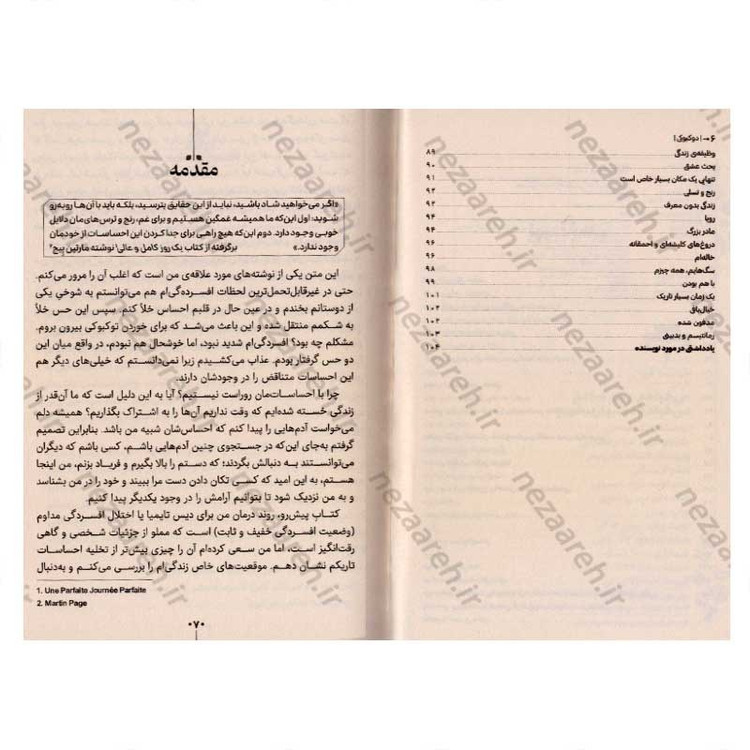 ۶ ••• | دوکبوکی |
وظیفه‌ی زندگی ۸۹
بحث عشق ۹۰
تنهایی یک مکان بسیار خاص است ۹۱
رنج و تسلی ۹۲
زندگی بدون معرف ۹۳
رویا ۹۴
مادر بزرگ ۹۴
دروغ‌های کلیشه‌ای و احمقانه ۹۶
خاله‌ام ۹۶
سگ‌هایم، همه چیزم ۹۸
با هم بودن ۹۹
یک زمان بسیار تاریک ۱۰۱
خیال‌باقی ۱۰۲
مدفون شده ۱۰۲
رمانتیسم و بدبینی ۱۰۳
یادداشتی در مورد نویسنده ۱۰۴
مقدمه
«اگر می‌خواهید شاد باشید، نباید از این حقایق بترسید، بلکه باید با آن‌ها روبه‌رو
شوید: اول این‌که ما همیشه غمگین هستیم و برای غم، رنج و ترس‌های‌مان دلایل
خوبی وجود دارد. دوم این‌که هیچ راهی برای جدا کردن این احساسات از خودمان
وجود ندارد.» برگرفته از کتاب یک روز کامل و عالی۱ نوشته مارتین پیج۲
این متن یکی از نوشته‌های مورد علاقه‌ی من است که اغلب آن را مرور می‌کنم.
حتی در غیرقابل‌تحمل‌ترین لحظات افسرده‌گی‌ام هم می‌توانستم به شوخیِ یکی
از دوستانم بخندم و در عین حال در قلبم احساس خلأ کنم. سپس این حس خلأ
به شکمم منتقل شده و این باعث می‌شد که برای خوردن توکبوکی بیرون بروم.
مشکلم چه بود؟ افسردگی‌ام شدید نبود، اما خوشحال هم نبودم، در واقع میان این
دو حس گرفتار بودم. عذاب می‌کشیدم زیرا نمی‌دانستم که خیلی‌های دیگر هم
این احساسات متناقض را در وجودشان دارند.
چرا با احساسات‌مان روراست نیستیم؟ آیا به این دلیل است که ما آن‌قدر از
زندگی خسته شده‌ایم که وقت نداریم آن‌ها را به اشتراک بگذاریم؟ همیشه دلم
می‌خواست آدم‌هایی را پیدا کنم که احساس‌شان شبیه من باشد. بنابراین تصمیم
گرفتم به‌جای این‌که در جستجوی چنین آدم‌هایی باشم، کسی باشم که دیگران
می‌توانستند به دنبالش بگردند؛ که دستم را بالا بگیرم و فریاد بزنم، من اینجا
هستم، به این امید که کسی تکان دادن دست مرا ببیند و خود را در من بشناسد
و به من نزدیک شود تا بتوانیم آرامش را در وجود یکدیگر پیدا کنیم.
کتاب پیش‌رو، روند درمان من برای دیس تایمیا یا اختلال افسردگی مداوم
(وضعیت افسردگی خفیف و ثابت) است که مملو از جزئیات شخصی و گاهی
رقت‌انگیز است، اما من سعی کرده‌ام آن را چیزی بیش‌تر از تخلیه احساسات
تاریکم نشان دهم. موقعیت‌های خاص زندگی‌ام را بررسی می‌کنم و به‌دنبال
1. Une Parfaite Journée Parfaite
2. Martin Page
۰۷۰
nezaareh.ir
nezaareh.ir
nezaareh.ir
nezaareh.ir
nezaareh.ir
nezaareh.ir